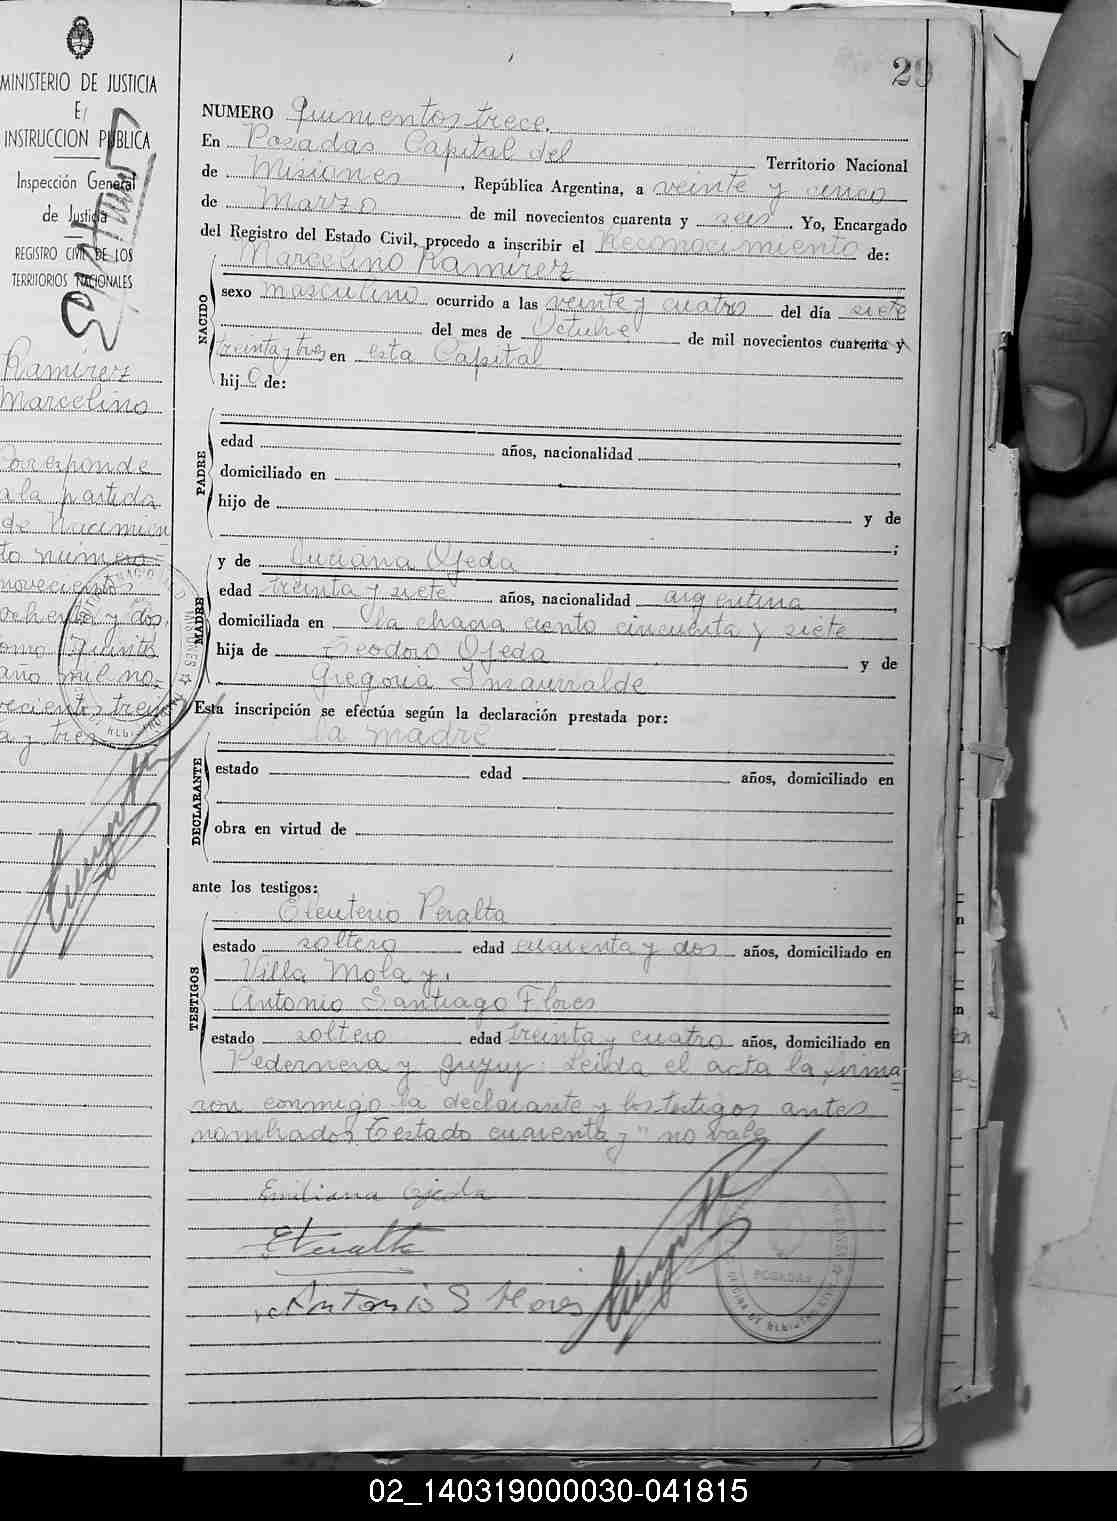 29
MINISTERIO DE JUSTICIA
E
INSTRUCCION PUBLICA
Inspección General
de Justicia
REGISTRO CIVIL DE LOS
TERRITORIOS NACIONALES
Ramírez
Marcelino
Corresponde
a la partida
de Nacimien
to número
novecientos
ochenta y dos
tomo Quinto
año mil no=
vecientos trein
ta y tres
NUMERO Quinientos trece.
En Posadas Capital del Territorio Nacional
de Misiones, República Argentina, a veinte y cinco
de Marzo de mil novecientos cuarenta y seis. Yo, Encargado
del Registro del Estado Civil, procedo a inscribir el Reconocimiento de:
Marcelino Ramírez
NACIDO
sexo masculino ocurrido a las veinte y cuatro del día siete
del mes de Octubre de mil novecientos cuarenta y
treinta y tres en esta Capital
hijo de:
PADRE
edad años, nacionalidad ,
domiciliado en
hijo de y de
;
MADRE
y de Luciana Ojeda
edad treinta y siete años, nacionalidad argentina,
domiciliada en la chacra ciento cincuenta y siete
hija de Teodoro Ojeda y de
Gregoria Insaurralde
Esta inscripción se efectúa según la declaración prestada por:
la madre
DECLARANTE
estado edad años, domiciliado en
obra en virtud de
ante los testigos:
TESTIGOS
Eleuterio Peralta
estado soltero edad cuarenta y dos años, domiciliado en
Villa Mola y
Antonio Santiago Flores
estado soltero edad treinta y cuatro años, domiciliado en
Pedernera y Jujuy. Leída el acta la firma=
ron conmigo la declarante y los testigos antes
nombrados. Testado cuarenta y" no vale
Emiliana Ojeda
E Peralta
Antonio S Flores
POSADAS
02_140319000030-041815